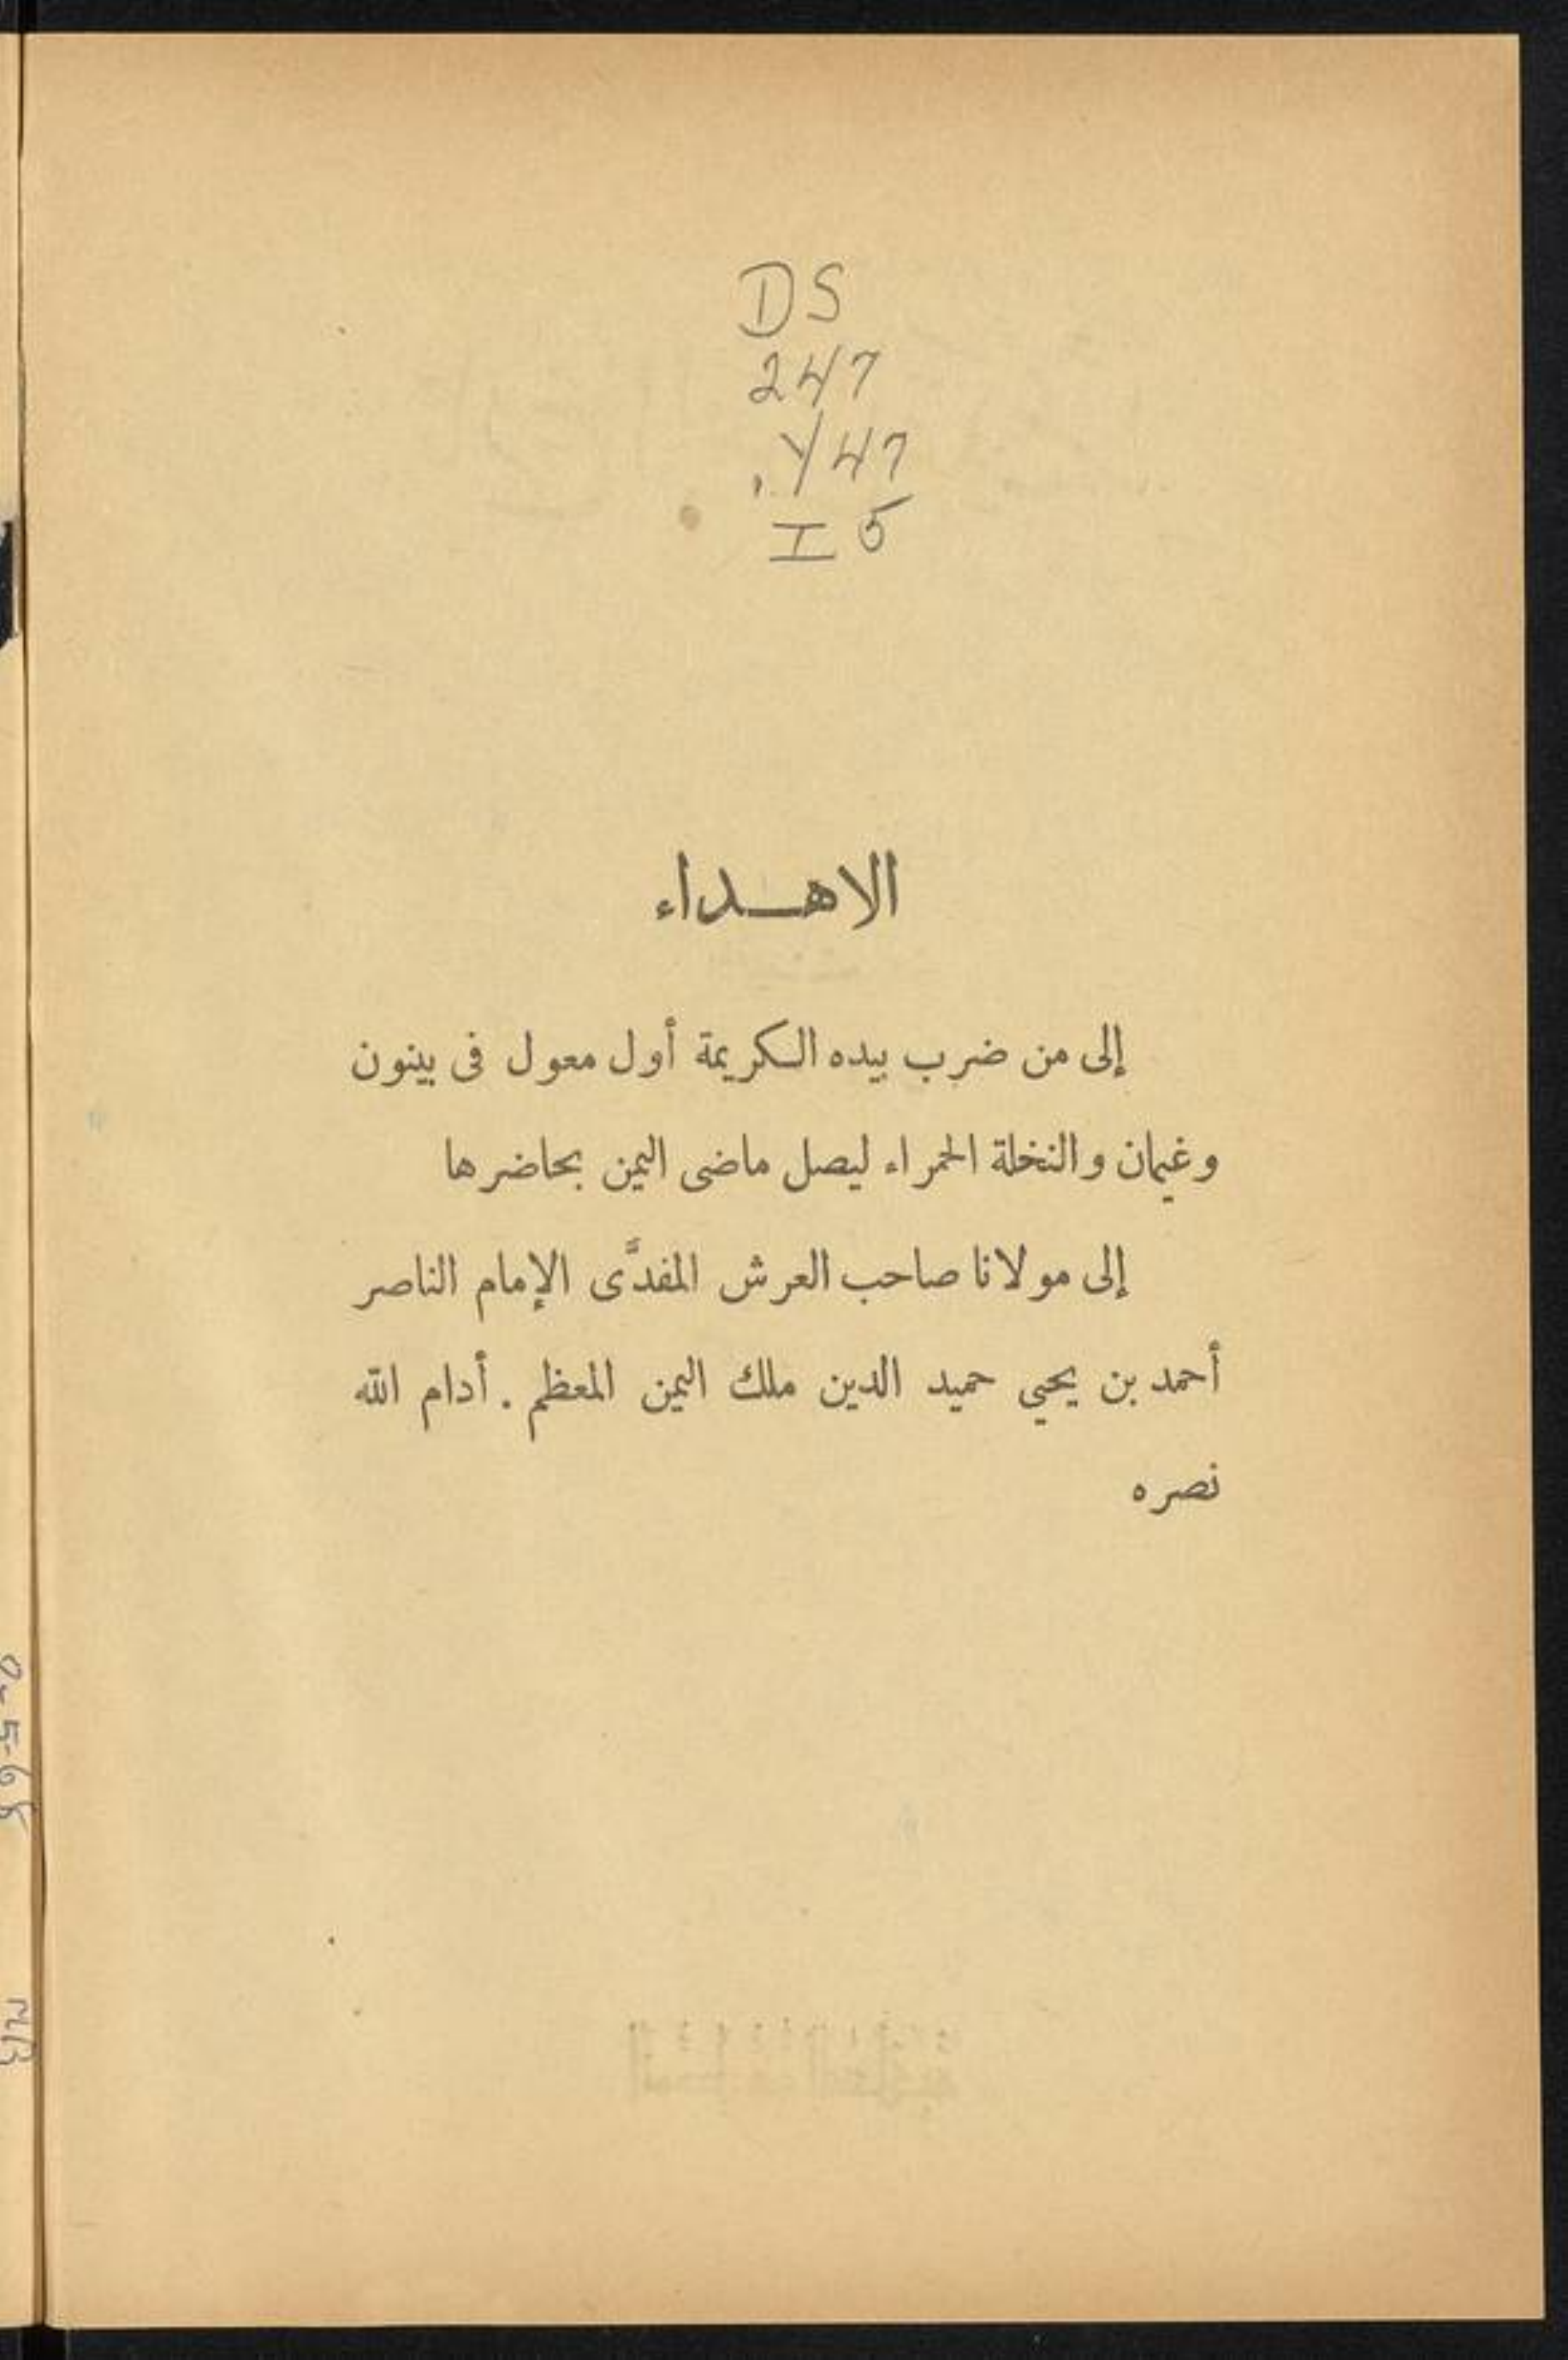 DS
247
.Y47
I5
الاهـداء
إلى من ضرب بيده الكريمة أول معول فى بينون
وغيمان والنخلة الحمراء ليصل ماضى اليمن بحاضرها
إلى مولانا صاحب العرش المفدَّى الإمام الناصر
أحمد بن يحيي حميد الدين ملك اليمن المعظم . أدام الله
نصره